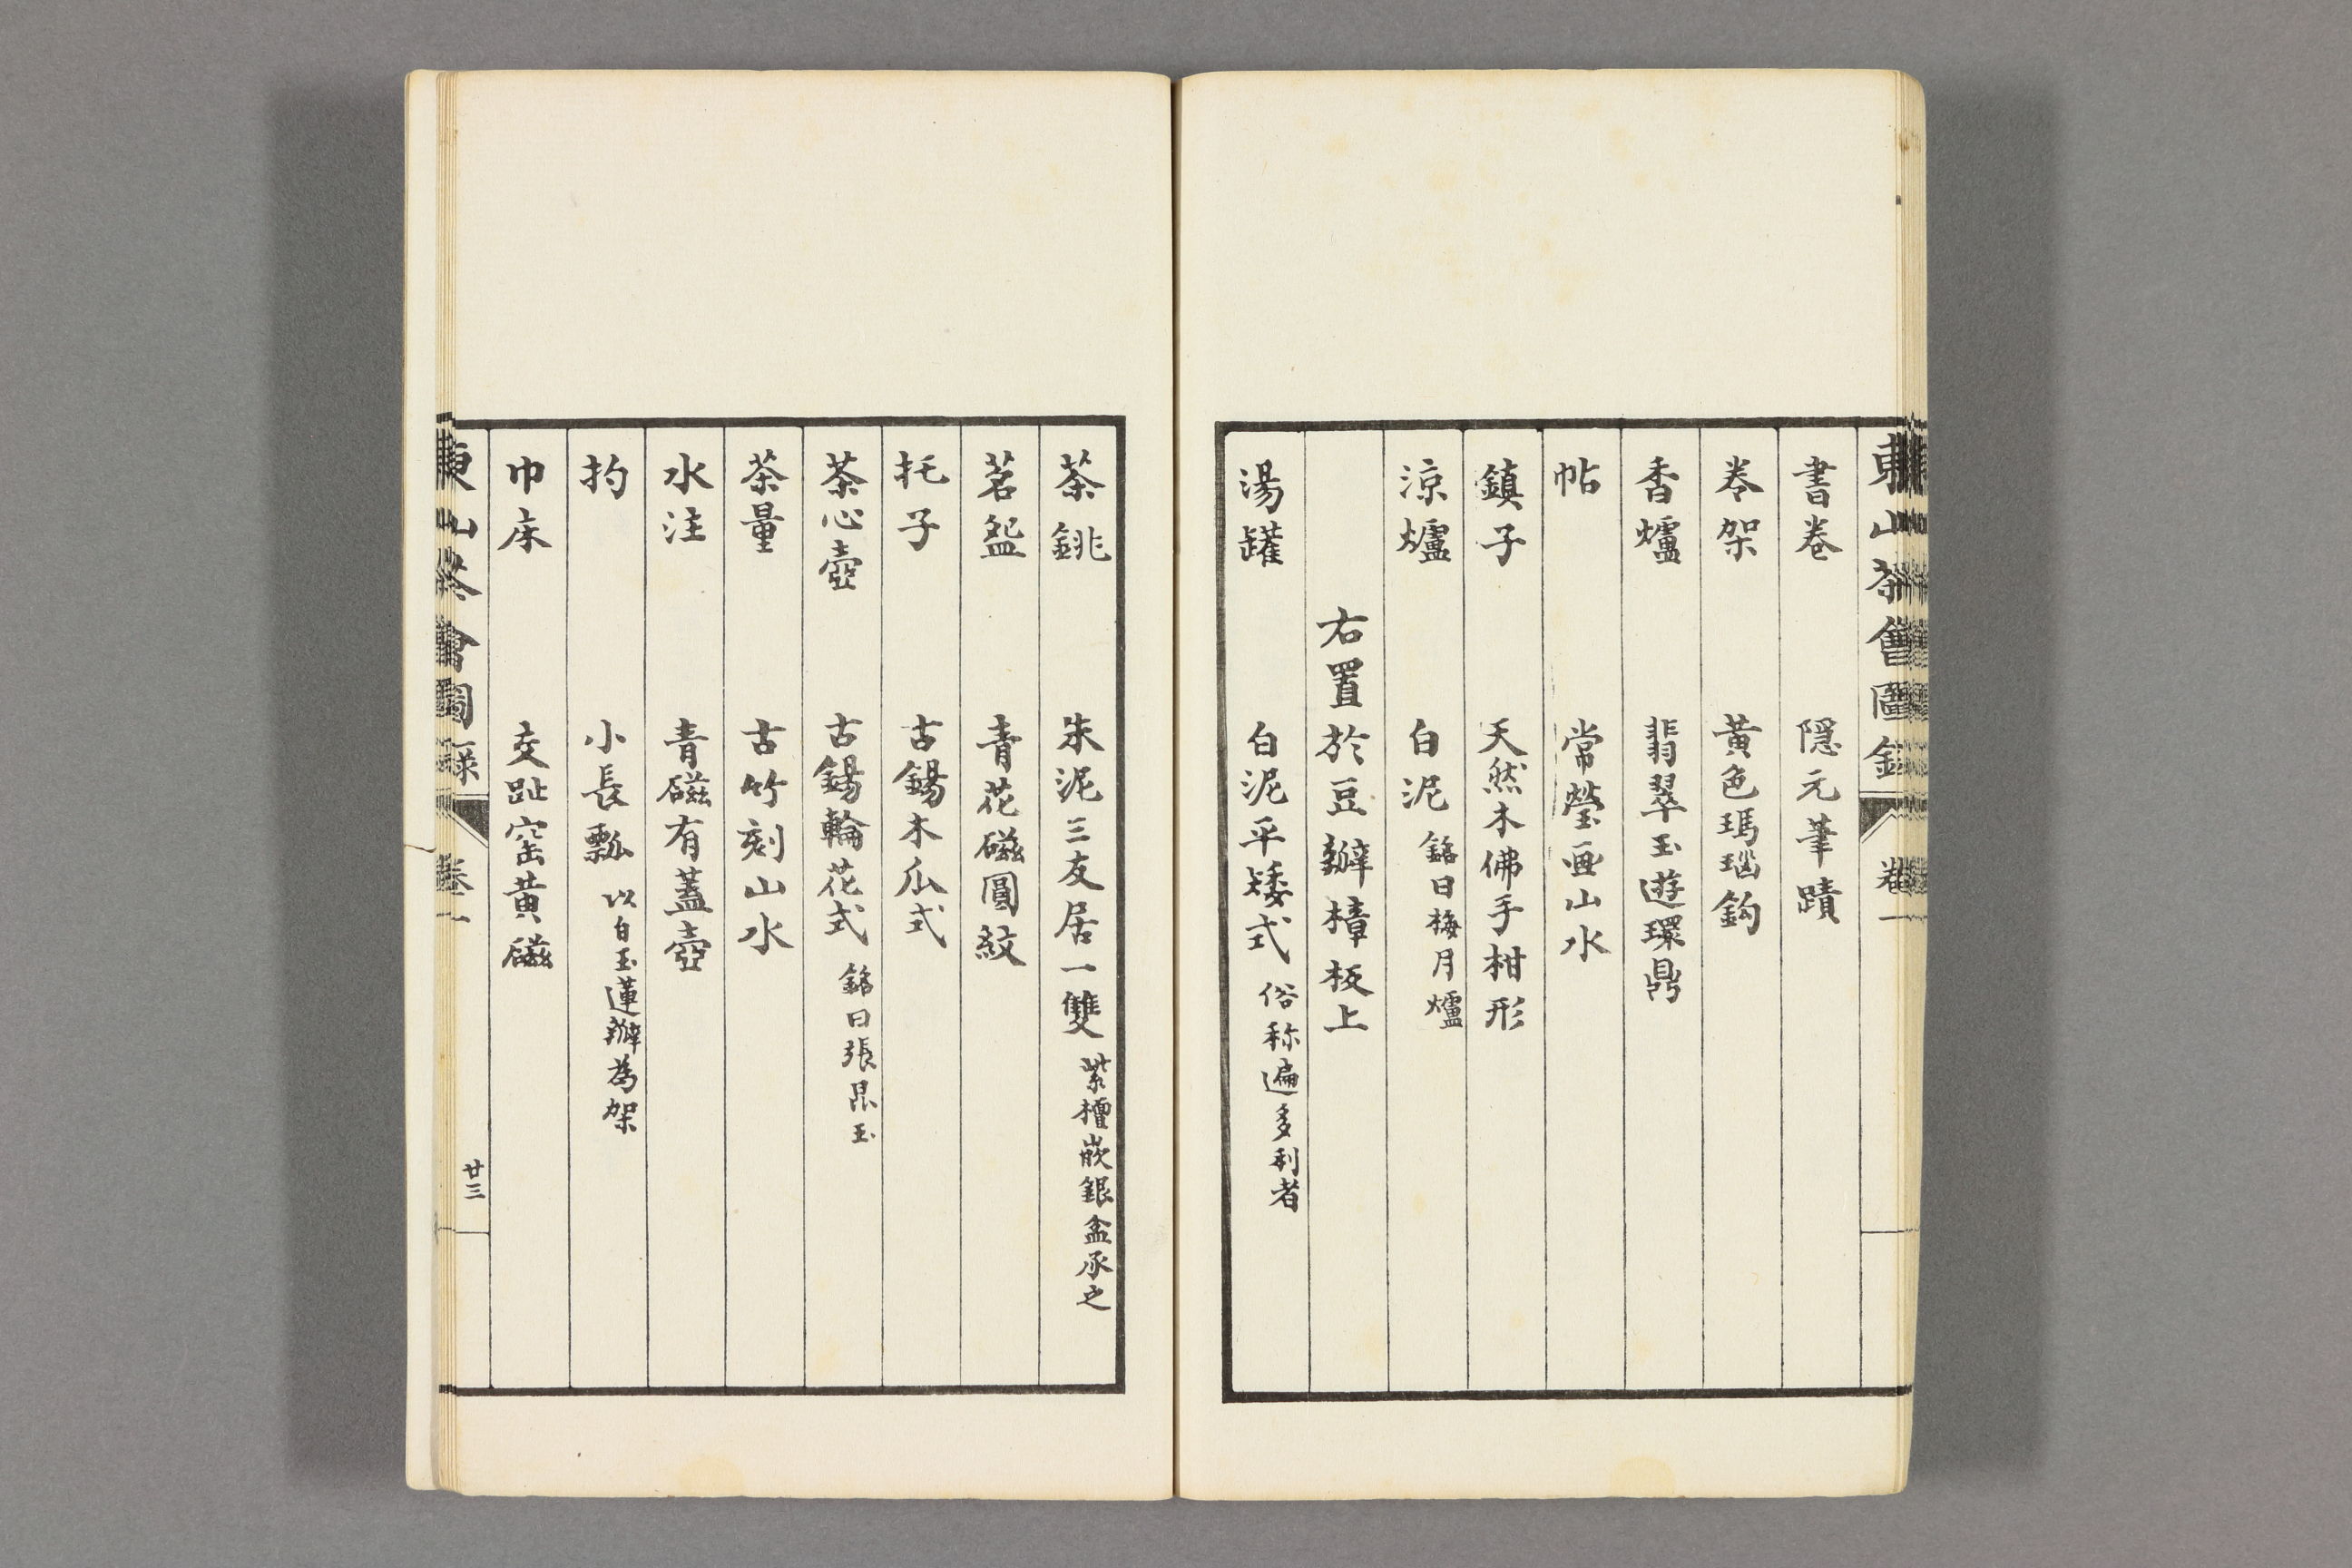 東山茶會圖錄 卷一
書卷 隱元筆蹟
卷架 黃色瑪瑙鈎
香爐 翡翠玉遊環鼎
帖 常瑩画山水
鎮子 天然木佛手柑形
涼爐 白泥 銘曰梅月爐
右置於豆瓣樟板上
湯罐 白泥平矮式 俗称遍多利者
茶銚 朱泥三友居一雙 紫檀嵌銀盒承之
茗盌 青花磁圓紋
托子 古錫木瓜式
茶心壺 古錫輪花式 銘曰張昆玉
茶量 古竹刻山水
水注 青磁有蓋壺
扚 小長瓢 以白玉蓮瓣為架
巾床 交趾窑黄磁
東山茶會圖錄 卷一 廿三